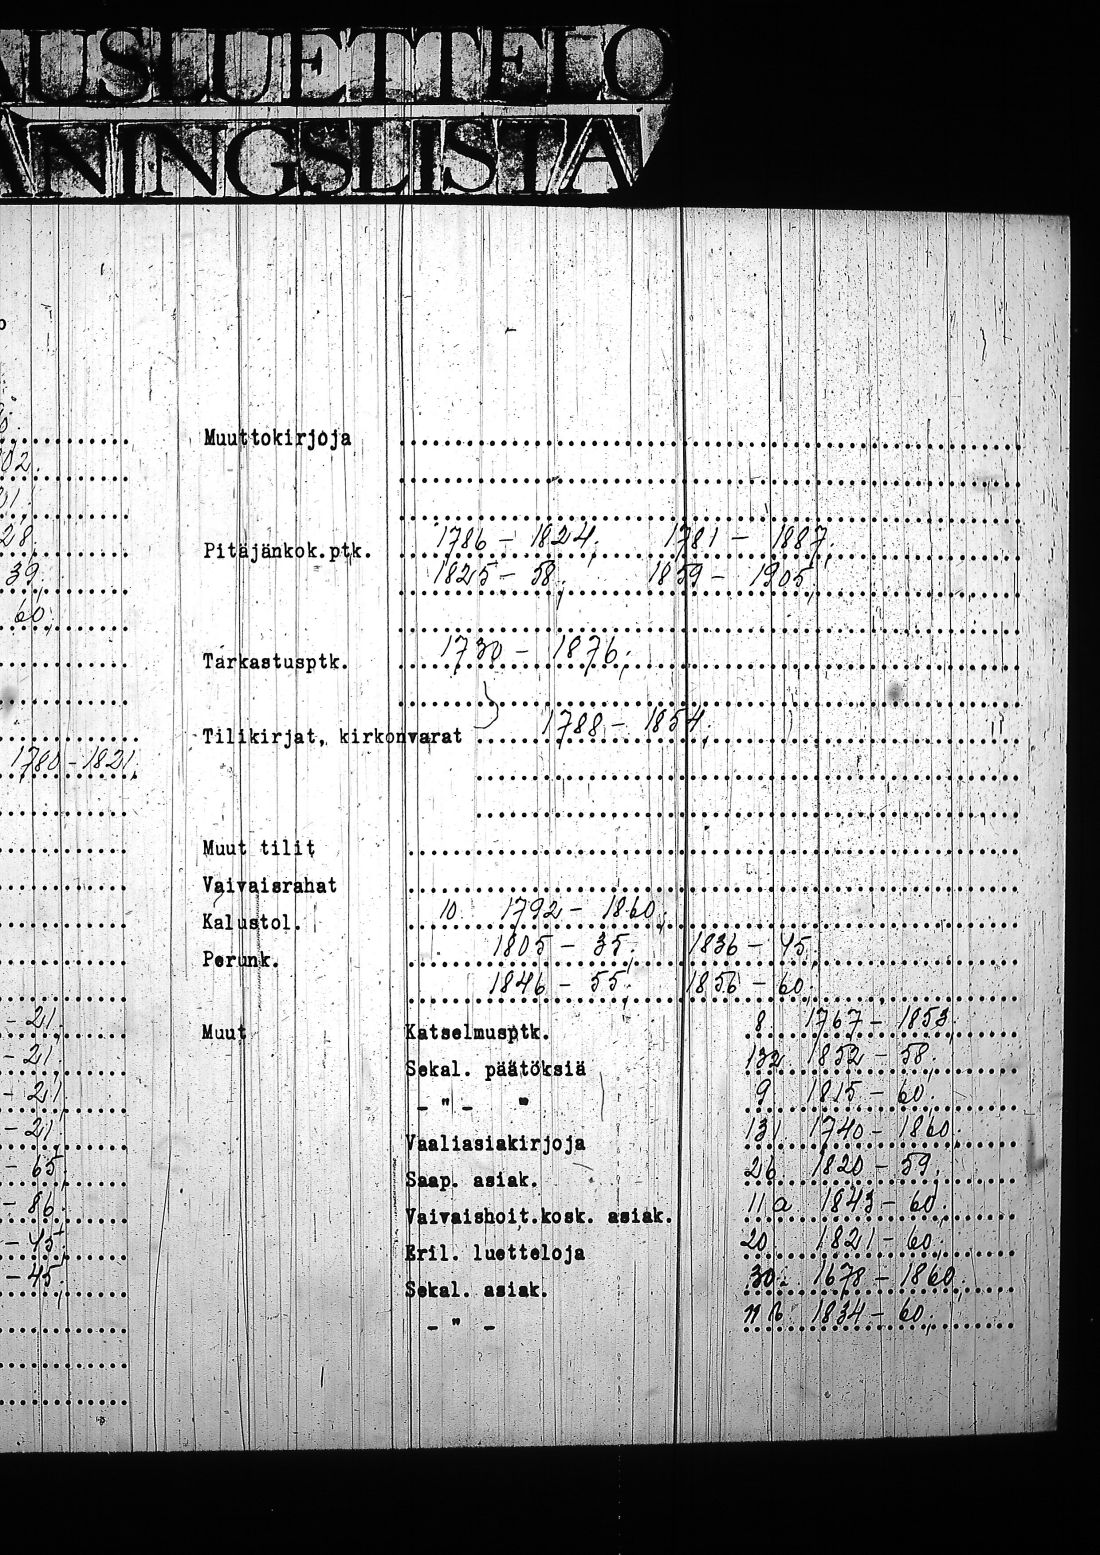 AUSLUETTELO
ANINGSLISTA
02.
28,
39,
60,
1780 - 1821,
- 21,
- 21
- 21
- 21
- 65,
- 86.
- 45,
- 45,
Muuttokirjoja
Pitäjänkok.ptk. 1786 - 1824, 1781 - 1887,
1825 - 58, 1859 - 1905,
Tarkastusptk. 1730 - 1876,
Tilikirjat, kirkonvarat 1788 - 1854,
Muut tilit
Vaivaisrahat
Kalustol. 10. 1792 - 1860,
Perunk. 1805 - 35, 1836 - 45,
1846 - 55, 1856 - 60,
Muut Katselmusptk. 8 1767 - 1853
Sekal. päätöksiä 132 1852 - 58,
- " - " 9 1815 - 60.
Vaaliasiakirjoja 131 1740 - 1860,
Saap. asiak. 26 1820 - 59,
Vaivaishoit.kosk. asiak. 11 a 1843 - 60,
Eril. luetteloja 20 1821 - 60,
Sekal. asiak. 30 1678 - 1860,
- " - 1834 - 60,